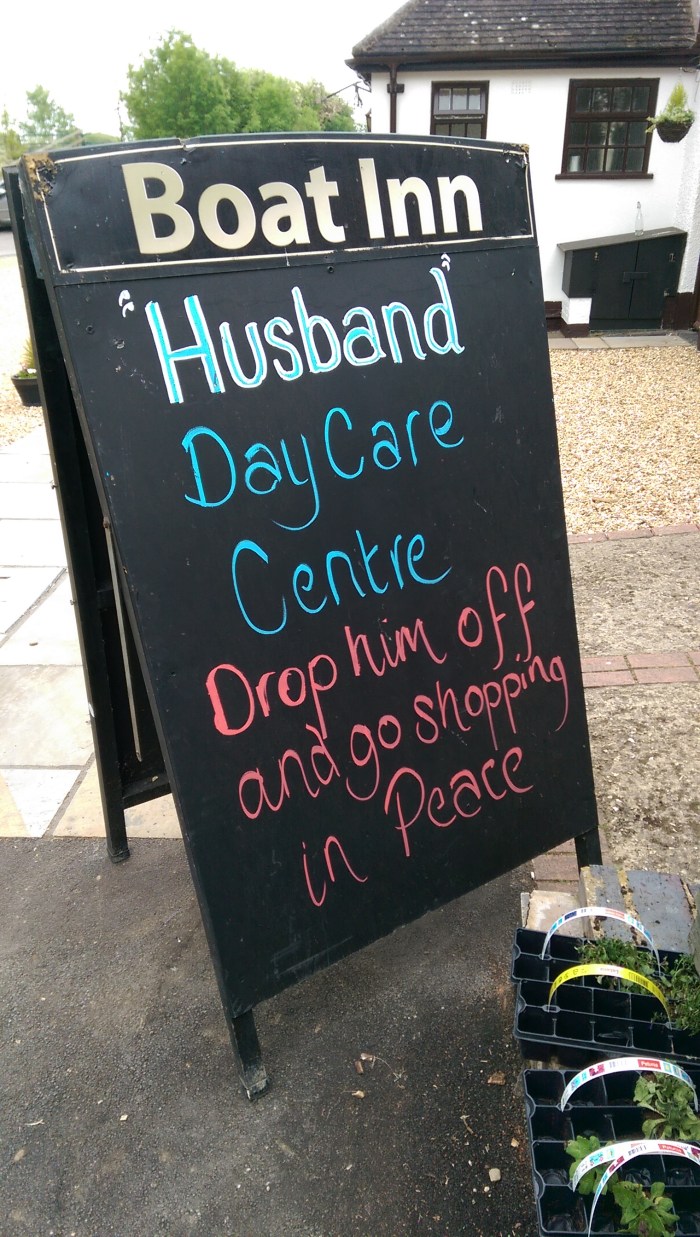 Boat Inn
"Husband"
Day Care
Centre
Drop him off
and go shopping
in Peace